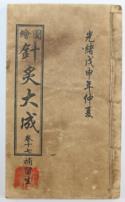 光緒戊申年仲夏
繪圖
針灸大成
卷十七